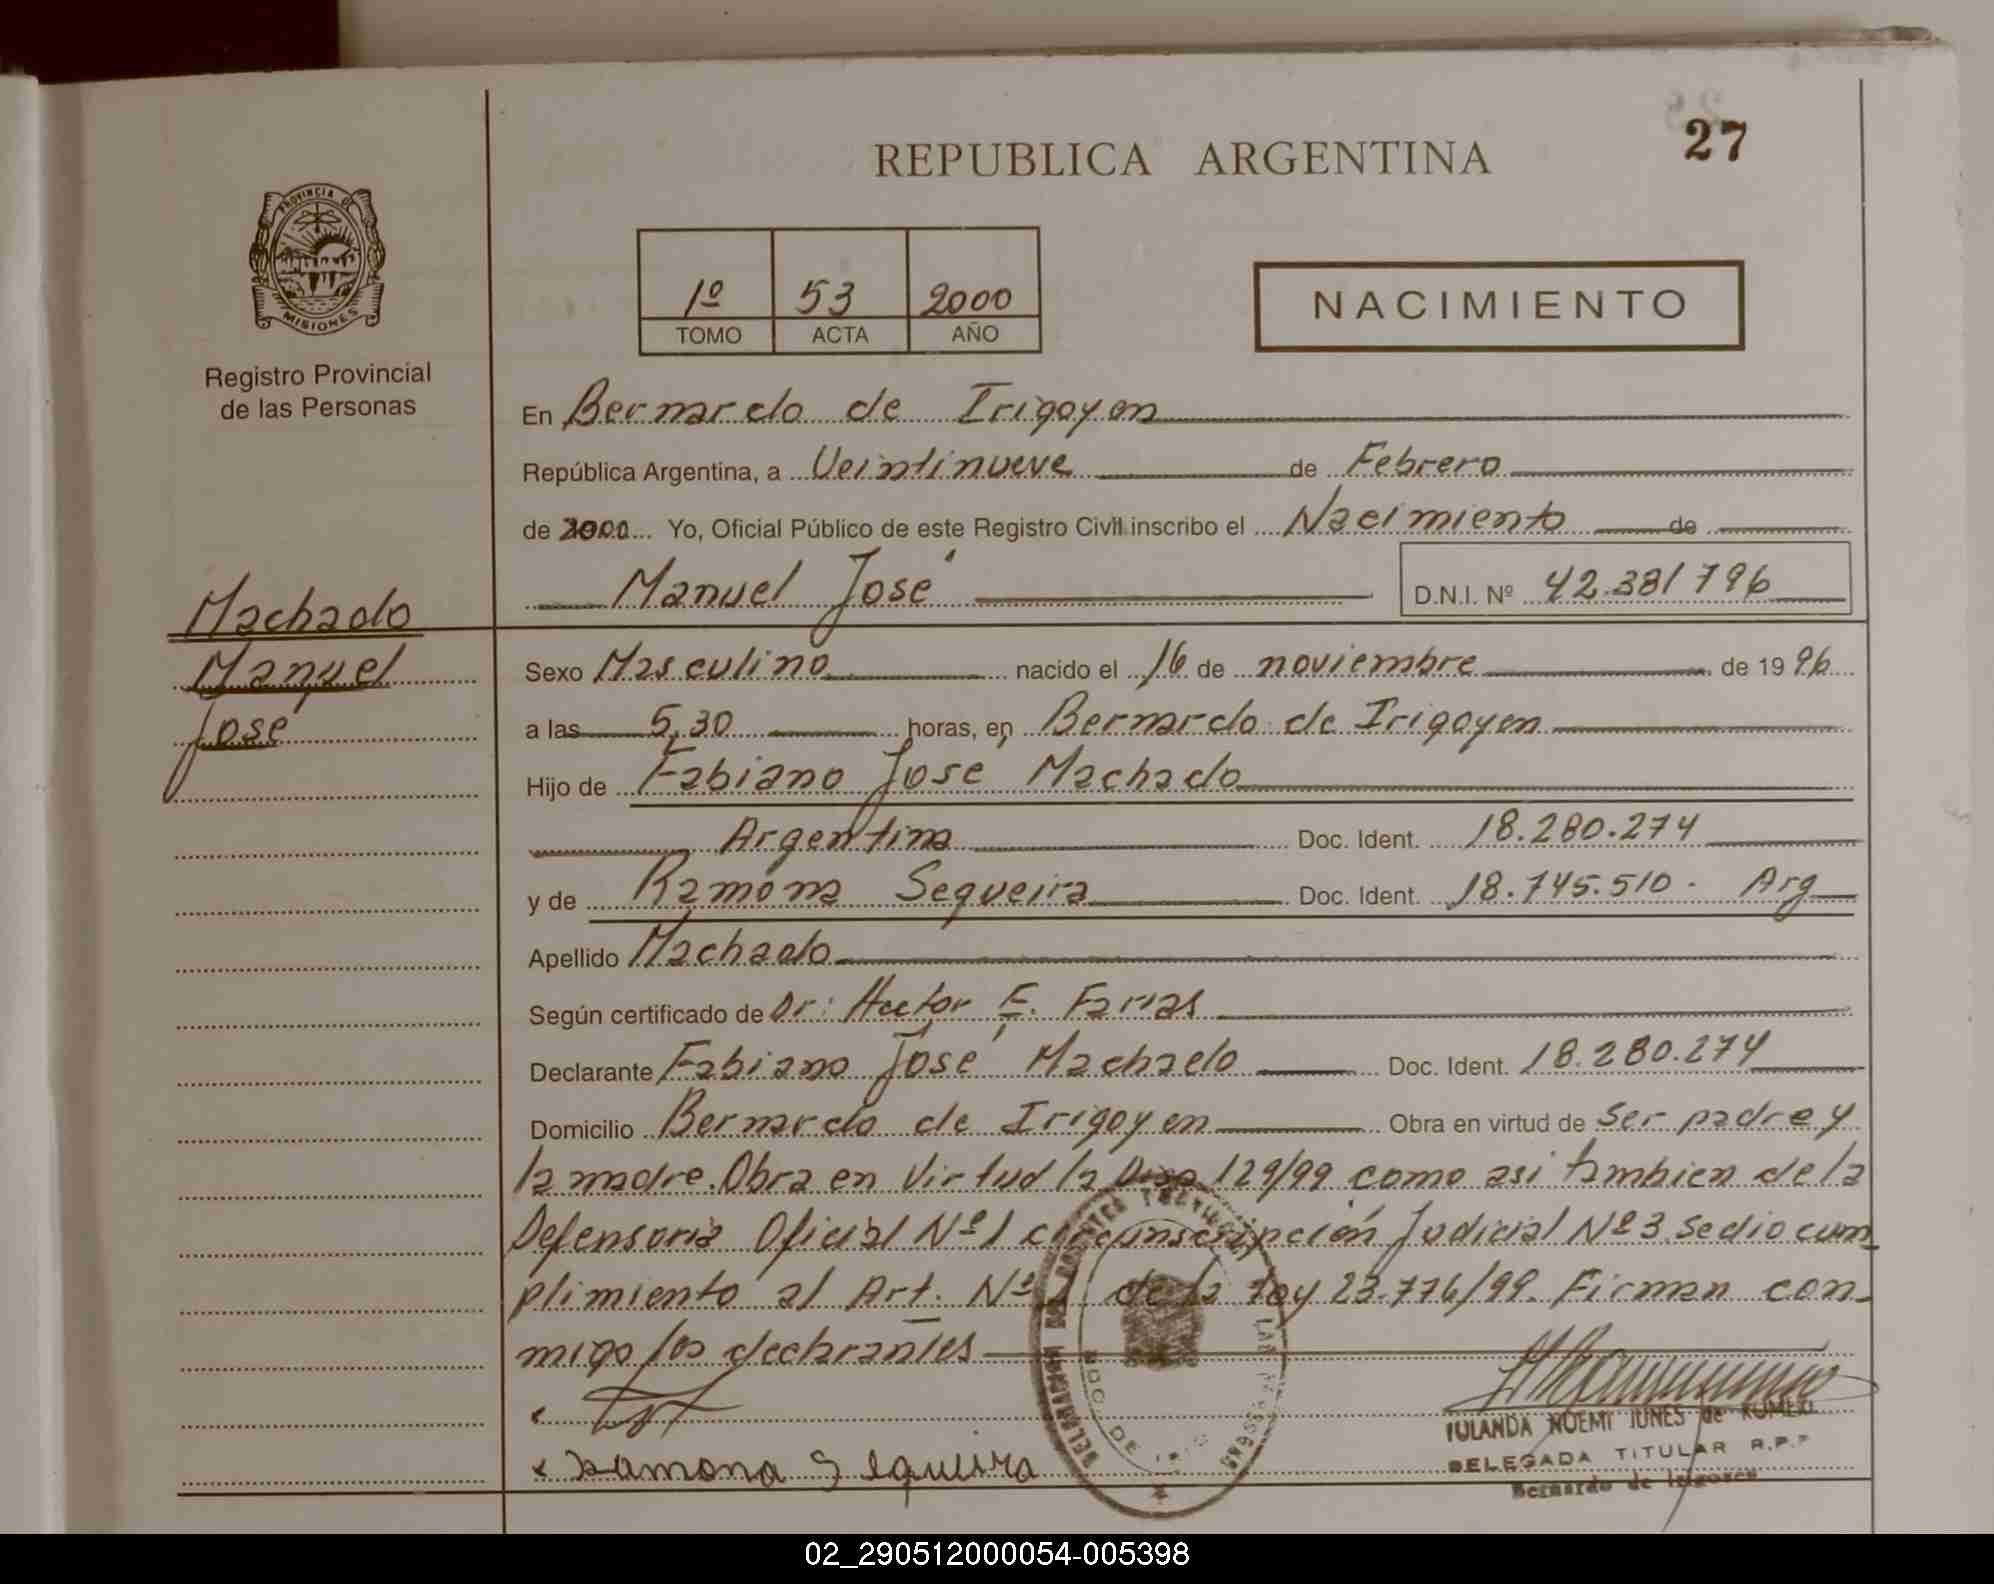 27
REPUBLICA ARGENTINA
PROVINCIA DE
MISIONES
Registro Provincial
de las Personas
1º 53 2000
TOMO ACTA AÑO
NACIMIENTO
En Bernardo de Irigoyen
República Argentina, a Veintinueve de Febrero
de 2000 Yo, Oficial Público de este Registro Civil inscribo el Nacimiento de
Manuel José D.N.I. Nº 42.381796
Machado
Manuel
José
Sexo Masculino nacido el 16 de noviembre de 1996
a las 5,30 horas, en Bernardo de Irigoyen
Hijo de Fabiano José Machado
Argentina Doc. Ident. 18.280.274
y de Ramona Sequeira Doc. Ident. 18.745.510. Arg
Apellido Machado
Según certificado de Dr: Hector E. Farias
Declarante Fabiano José Machado Doc. Ident. 18.280.274
Domicilio Bernardo de Irigoyen Obra en virtud de ser padre y
la madre. Obra en Virtud la Disp 129/99 como asi tambien de la
Defensoria Oficial Nº1 circunscripción Judicial Nº3. se dio cum
plimiento al Art. Nº de la Ley 23.776/99. Firman con-
migo los declarantes
Ramona Sequeira
NOEMI JUNES de
DELEGADA TITULAR R.P.P
Bernardo de Irigoyen
02_290512000054-005398